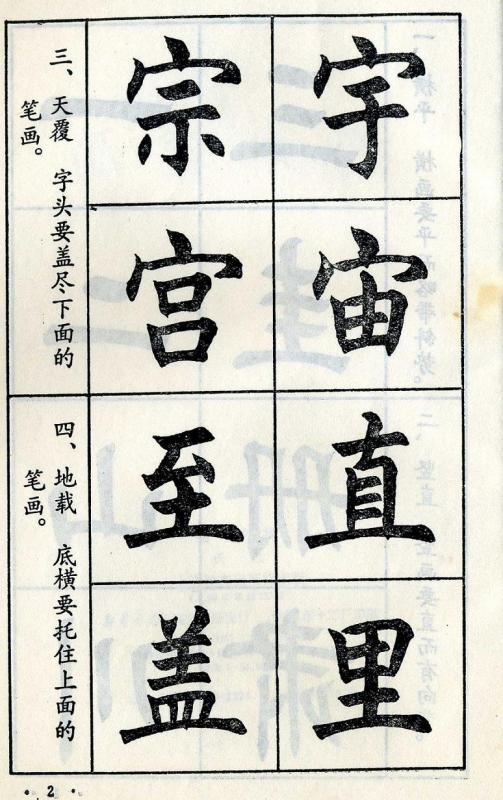 宇
宙
宗
宫
三、天覆 字头要盖尽下面的
笔画。
直
里
至
盖
四、地载 底横要托住上面的
笔画。
2